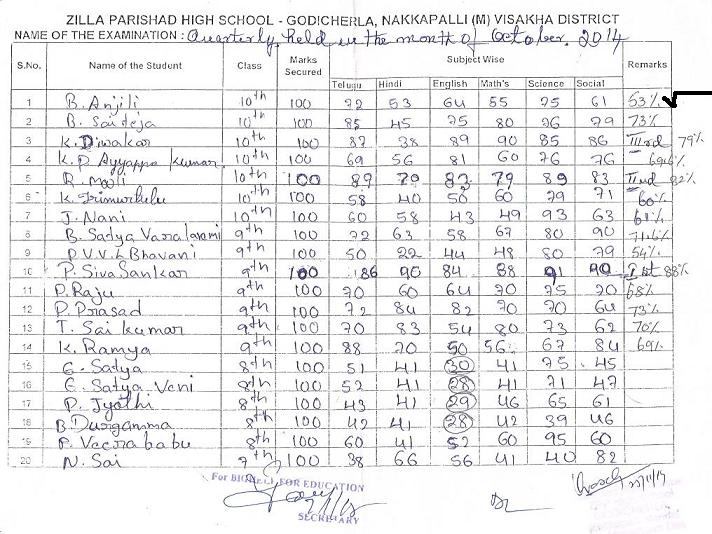 ZILLA PARISHAD HIGH SCHOOL - GODICHERLA, NAKKAPALLI (M) VISAKHA DISTRICT
NAME OF THE EXAMINATION : Quarterly, held in the month of October, 2014
S.No. Name of the Student Class Marks Secured Subject Wise Remarks
Telugu Hindi English Math's Science Social
1 B. Anjili 10th 100 72 53 64 55 75 61 63%
2 B. Saiteja 10th 100 85 45 75 80 76 79 73%
3 K. Diwakar 10th 100 87 38 89 90 85 86 IIIrd 79%
4 K.P. Ayyappa Kumar 10th 100 69 56 81 60 76 76 69.6%
5 R. Mooli 10th 100 89 70 83 79 89 83 IInd 82%
6 K. Trimurthulu 10th 100 58 40 50 60 79 71 60%
7 J. Nani 10th 100 60 58 43 49 93 63 61%
8 B. Satya Varalaxmi 9th 100 72 63 58 67 80 90 71.6%
9 P.V.V.L Bhavani 9th 100 50 22 44 48 80 79 54%
10 P. Siva Sankar 9th 100 86 90 84 88 91 90 Ist 88%
11 P. Raju 9th 100 70 60 64 70 75 70 68%
12 P. Prasad 9th 100 72 84 82 70 70 64 73%
13 T. Sai Kumar 9th 100 70 83 54 80 73 62 70%
14 K. Ramya 9th 100 88 70 50 56 67 84 69%
15 G. Satya 8th 100 51 41 30 41 75 45
16 E. Satya Veni 8th 100 52 41 28 41 71 47
17 P. Jyothi 8th 100 43 41 29 46 65 61
18 B. Durgamma 8th 100 42 41 28 42 39 46
19 P. Veerababu 8th 100 60 41 52 60 95 60
20 N. Sai 7th 100 38 66 56 41 40 82
For FOR EDUCATION
SECRETARY